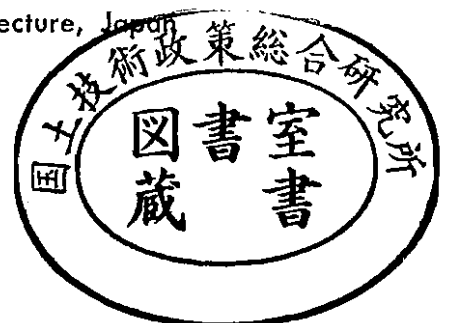 ecture, Japan
国土技術政策総合研究所
図書室
蔵書